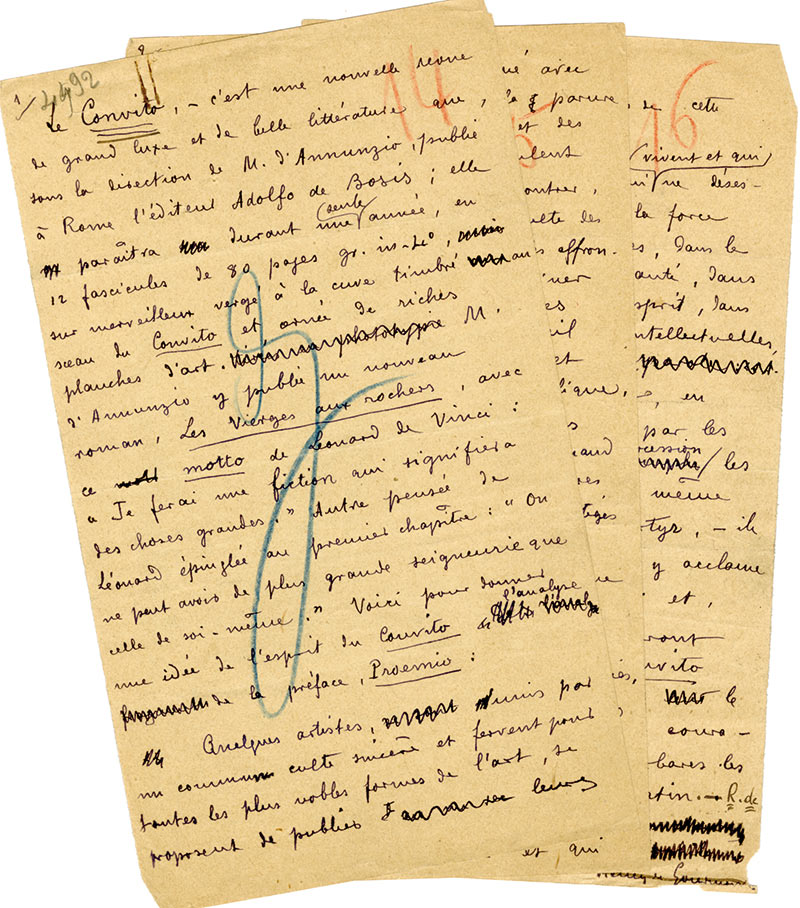 1/
4492
14
Le Convito, – c'est une nouvelle revue
de grand luxe et de belle littérature que,
sous la direction de M. d'Annunzio, publie
à Rome l'éditeur Adolfo de Bosis ; elle
paraîtra durant une (seule) année, en
12 fascicules de 80 pages gr. in-4o,
sur merveilleux vergé, à la cuve timbré
sceau du Convito et ornée de riches
planches d'art. M.
d'Annunzio y publie un nouveau
roman, Les Vierges aux rochers, avec
ce motto de Léonard de Vinci :
« Je ferai une fiction qui signifiera
des choses grandes. » Autre pensée de
Léonard épinglée au premier chapître : « On
ne peut avoir de plus grande seigneurie que
celle de soi-même. » Voici pour donner
une idée de l'esprit du Convito l'analyse
de la préface, Proemio :
Quelques artistes, unis par
un commun culte sincère et fervent pour
toutes les plus nobles formes de l'art, se
proposent de publier leurs
5
né avec
parure
et des
ulent
ontrer,
ulte des
ans affron-
iner
es
il
et
lique,
s
and
res
tégés
ne
ies,
et qui
16
de cette
(vivent et qui
qu'ne déses-
la force
es, dans le
auté, dans
sprit, dans
intellectuelles,
en
par les
cession
les
même
rtyr, – ils
y acclame
et,
ront
nvito
le
coura-
bares les
tin. – R. de
Remy de Gourmont